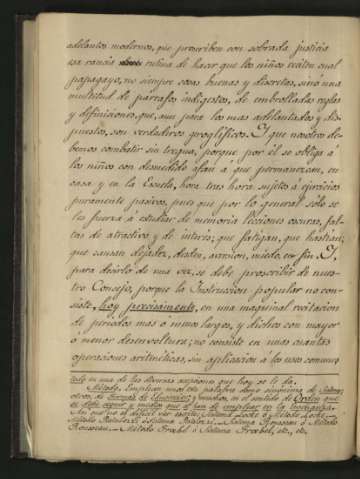 adelantos modernos, que proscriben con sobrada justicia
esa rancia rutina de hacer que los niños reciten cual
papagayo, no siempre cosas buenas y discretas, sinó una
multitud de párrafos indigestos, de embrolladas reglas
y definiciones, que, aun para los mas adelantados y dis-
puestos, son verdaderos geroglíficos. Y que nosotros de-
bemos combatir sin tregua, porque por él se obliga á
los niños con desmedido afan á que permanezcan, en
casa y en la Escuela, hora tras hora sujetos á ejercicios
puramente pasivos, pues que por lo general sólo se
les fuerza á estudiar de memoria lecciones oscuras, fal-
tas de atractivo y de interés; que fatigan, que hastian;
que causan dejadez, desden, aversion, miedo, en fin. Y,
para decirlo de una vez, se debe proscribir de nues-
tro Consejo, porque la Instruccion popular no con-
siste, hoy precisamente, en una maquinal recitacion
de periodos mas ó menos largos, y dichos con mayor
ó menor desenvoltura; no consiste en unas cuantas
operaciones aritméticas, sin aplicacion á los usos comunes
en una de las diversas acepciones que hoy se le da.
Método. Emplean unos esta palabra como sinónimo de Sistema;
otros, de Formas de Educacion; y muchos, en el sentido de Orden que
se debe seguir y medios que se han de emplear en la enseñanza.
Asi que no es dificil ver escrito: Sistema Locke ó Método Locke.
Método Pestalozzi ó Sistema Pestalozzi. Sistema Rousseau ó Método
Rousseau. Método Frœbel ó Sistema Frœbel, etc., etc.